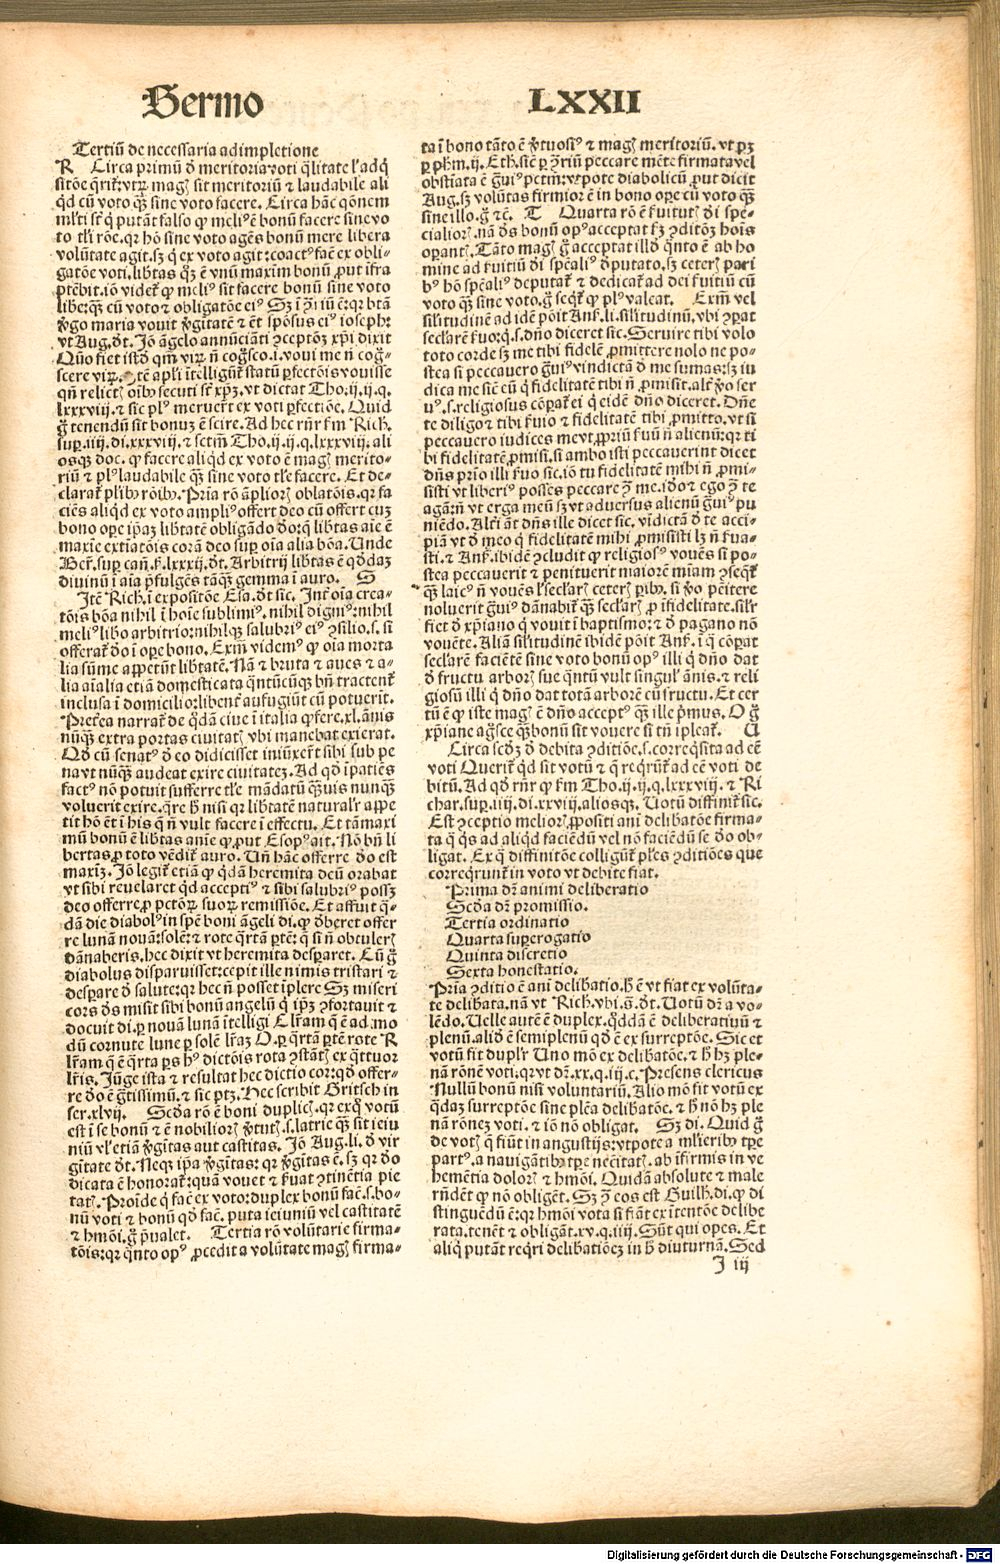 Sermo LXXII
Tertiū de necessaria adimpletione
R Circa primū ꝺ meritoria voti q̄litate l'adq̄
sitōe q̄rit᷑: vtꝝ magꝭ sit meritoriū ⁊ laudabile ali
qd̄ cū voto qꝫ̄ sine voto facere. Circa hāc qōnem
ml'ti sūt q̄ putāt falso ꝙ meliꝰ ē bonū facere sine vo
to tl'i rōe. qꝛ hō sine voto agēs bonū mere libera
volūtate agit. sꝫ q̄ ex voto agit: coactꝰ facē ex obli-
gatōe voti. lib̄tas q̄ꝫ ē vnū maxim̄ bonū ꝓut īfra
ptēbit. iō videt᷑ ꝙ meliꝰ sit facere bonū sine voto
libe: qꝫ̄ cū voto ⁊ obligatōe eiꝰ Sꝫ ī ꝯ̄iū ē: qꝛ btā
ꝟgo maria vouit ꝟgitatē ⁊ ēt spōsus eiꝰ ioseph:
vt Aug. ꝺt. Jō āgelo annūciāti ꝯceptōꝫ xp̄i dixit
Quō fiet istd̄ qm̄ viꝝ n̄ coḡsco. i. voui me n̄ coḡ-
scere viꝝ. tē apl'i ītelligūt᷑ statū ꝑfectōis vouisse
qn̄ relictꝭ oībꝰ secuti sūt xp̄ꝫ. vt dictat Tho. ij. ij. q.
lxxxviij. ⁊ sic plꝰ meruēt ex voti ꝑfectiōe. Quid
g̊ tenendū sit bonuꝫ ē scire. Ad hec rn̄r ẜm Rich.
suꝑ. iiij. di. xxxviij. ⁊ sctm̄ Tho. ij. ij. q. lxxxviij. ali
osqꝫ doc. ꝙ facere aliqd̄ ex voto ē magꝭ merito-
riū ⁊ plꝰ laudabile qꝫ̄ sine voto tl'e facere. Et de-
clarat᷑ pl'ibꝰ rōibꝰ. Pria rō āpliorꝭ oblatōis. qꝛ fa
ciēs aliqd̄ ex voto ampliꝰ offert deo cū offert cuꝫ
bono oꝑe ip̄aꝫ lib̄tatē obligādo ꝺo. qꝛ lib̄tas aīe ē
maxīe extīatōis corā deo suꝑ oīa alia bōa. Unde
Ber̄. suꝑ can̄. ẜ. lxxxij. ꝺt. Arbitrij libtas ē qd̄daꝫ
diuinū ī aīa p̄fulgēs tāqꝫ̄ gemma ī auro. S
Jtē Rich. ī expositōe Esa. ꝺt sic. Jnt᷑ oīa crea-
tōis bōa nihil ī hoīe sublimiꝰ. nihil digniꝰ: nihil
meliꝰ libo arbitrio: nihilqꝫ salubriꝰ eiꝰ ꝯsilio. s. si
offerat᷑ ꝺo ī oꝑe bono. Exm̄ videmꝰ ꝙ oīa morta
lia sūme appetūt libtatē. Nā ⁊ bruta ⁊ aues ⁊ a-
lia aīalia etiā domesticata q̄ntūcūqꝫ bn̄ tractent᷑
inclusa ī domicilio: libent᷑ aufugiūt cū potuerit.
Preēa narrat᷑ de q̄dā ciue ī italia ꝙ fere. xl. ānis
nūqꝫ̄ extra portas ciuitatꝭ vbi manebat exierat.
Qd̄ cū senatꝰ ꝺ eo didicisset iniūxer̄t sibi sub pe
na vt nūqꝫ̄ audeat exire ciuitateꝫ. Ad qd̄ īpatiēs
factꝰ nō potuit sufferre tl'e mādatū qꝫ̄uis nunqꝫ̄
voluerit exire. q̄re ħ nisi qꝛ libtatē naturalr̄ appe
tit hō ēt ī his q̄ n̄ vult facere ī effectu. Et tā maxi
mū bonū ē libtas anīe ꝙ ꝓut Esopꝰ ait. Nō bn̄ li
bertas ꝓ toto vēdit᷑ auro. Un̄ hāc offerre ꝺo est
maxīꝫ. Jō legit᷑ etiā ꝙ q̄dā heremita deū orabat
vt sibi reuelaret qd̄ acceptiꝰ ⁊ sibi salubriꝰ possꝫ
deo offerre ꝓ pctōꝝ suoꝝ remissiōe. Et affuit q̄-
dā die diabolꝰ in spē boni āgeli di. ꝙ ꝺberet offer
re lunā nouā: solē: ⁊ rote q̄rtā ꝑtē: q̄ si n̄ obtulerꝭ
dānaberis. hec dixit vt heremita desꝑaret. Cū g̊
diabolus disparuisset: cepit ille nimis tristari ⁊
desꝑare ꝺ salute: qꝛ hec n̄ posset īplere Sꝫ miseri
cors ꝺs misit sibi bonū angelū q̄ ip̄ꝫ ꝯfortauit ⁊
docuit di. ꝑ nouā lunā ītelligi C l'r̄am q̄ ē ad mo
dū cornute lune ꝑ solē l'r̄aꝫ O. ꝑ q̄rtā ꝑtē rote R
l'r̄am q̄ ē q̄rta ꝑs hꝰ dictōis rota ꝯstātꝭ ex q̄ttuor
l'r̄is. Jūge ista ⁊ resultat hec dictio cor: qd̄ offer-
re ꝺo ē g̊tissimū. ⁊ sic ptꝫ. Hec scribit Gritsch in
ser. xlvij. Scd̄a rō ē boni duplicꝭ. qꝛ ex q̄ votū
est ī se bonū ⁊ ē nobiliorꝭ ꝟtutꝭ. s. latrie qꝫ̄ sit ieiu
niū vl' etiā ꝟgītas aut castitas. Jō Aug. li. ꝺ vir
gītate ꝺt. Neqꝫ ip̄a ꝟgītas: qꝛ ꝟgītas ē. sꝫ qꝛ ꝺo
dicata ē honorat᷑: quā vouet ⁊ ẜuat ꝯtinētia pie
tatꝭ. Proīde q̄ facē ex voto: duplex bonū facē. s. bo-
nū voti ⁊ bonū qd̄ facē. puta ieiuniū vel castitatē
⁊ hmōi. g̊ p̄ualet. Tertia rō volūtarie firma-
tōis: qꝛ q̄nto opꝰ ꝓcedit a volūtate magꝭ firma-
ta ī bono tāto ē ꝟtuosiꝰ ⁊ magꝭ meritoriū. vt pꝫ
ꝑ ph̄m. ij. Eth. sic̄ ꝑ ꝯ̄riū peccare mēte firmata vel
obstīata ē g̊uiꝰ pctm̄: vtpote diabolicū ꝓut dicit
Aug. sꝫ volūtas firmior ē in bono oꝑe cū voto qꝫ̄
sine illo. g̊ ⁊c̄. T Quarta rō ē ẜuitutꝭ ꝺi spe-
cialiorꝭ. nā ꝺs bonū opꝰ acceptat ẜꝫ ꝯditōꝫ hoīs
oꝑantꝭ. Tāto magꝭ g̊ acceptat illd̄ q̄nto ē ab ho
mine ad ẜuitiū ꝺi spēali ꝺputato. sꝫ ceterꝭ pari
bꝰ hō spēaliꝰ deputat᷑ ⁊ dedicat᷑ ad dei ẜuitiū cū
voto qꝫ̄ sine voto. g̊ seqt᷑ ꝙ plꝰ valeat. Exm̄ vel
sil'itudinē ad idē pōit Anẜ. li. sil'itudinū. vbi ꝯꝑat
secl'arē ẜuo: q̄. s. dn̄o diceret sic. Seruire tibi volo
toto corde sꝫ me tibi fidelē ꝓmittere nolo ne po-
stea si peccauero g̊uiꝰ vindictā ꝺ me sumas: sꝫ iu
dica me sic̄ eū q̄ fidelitatē tibi n̄ ꝓmisit. alt᷑ ꝟo ser
uꝰ. s. religiosus cōꝑat᷑ ei q̄ eidē dn̄o diceret. Dn̄e
te diligo ⁊ tibi ẜuio ⁊ fidelitatē tibi ꝓmitto. vt si
peccauero iudices me vt ꝓpriū ẜuū n̄ alienū: qꝛ ti
bi fidelitatē ꝓmisi. si ambo isti peccauerint dicet
dn̄s prīo illi ẜuo sic. iō tu fidelitatē mihi n̄ ꝓmi-
sisti vt liberiꝰ posses peccare ꝯ̄ me. iꝺo ⁊ ego ꝯ̄ te
agā: n̄ vt erga meū sꝫ vt aduersus alienū g̊uiꝰ pu
niēdo. Alt᷑i āt dn̄s ille dicet sic. vidictā ꝺ te acci-
piā vt ꝺ meo q̄ fidelitatē mihi ꝓmisisti lꝫ n̄ ẜua-
sti. ⁊ Anẜ. ibidē ꝯcludit ꝙ religiosꝰ vouēs si po-
stea peccauerit ⁊ penituerit maiorē mīam ꝯseqt᷑
qꝫ̄ laicꝰ n̄ vouēs l' secl'arꝭ ceterꝭ ꝑibꝰ. si ꝟo pēitere
noluerit g̊uiꝰ dānabit᷑ qꝫ̄ secl'arꝭ ꝓ īfidelitate. sil'r
fiet ꝺ xp̄iano q̄ vouit ī baptismo: ⁊ ꝺ pagano nō
vouēte. Aliā sil'itudinē ibidē pōit Anẜ. ī q̄ cōꝑat
secl'arē faciētē sine voto bonū opꝰ illi q̄ dn̄o dat
ꝺ fructu arborꝭ sue q̄ntū vult singul' ānis. ⁊ reli
giosū illi q̄ dn̄o dat totā arborē cū fructu. Et cer
tū ē ꝙ iste magꝭ ē dn̄o acceptꝰ qꝫ̄ ille p̄mus. O g̊
xp̄iane ag̊sce qꝫ̄ bonū sit vouere si tn̄ īpleat᷑. U
Circa scd̄ꝫ ꝺ debita ꝯditiōe. s. correqsita ad eē
voti Querit᷑ qd̄ sit votū ⁊ q̄ reqrūt᷑ ad eē voti de
bitū. Ad qd̄ rn̄r ꝙ ẜm Tho. ij. ij. q. lxxxviij. ⁊ Ri
char. suꝑ. iiij. di. xxviij. aliosqꝫ. Uotū diffinit᷑ sic.
Est ꝯceptio meliorꝭ ꝓpositi ani delibatōe firma-
ta q̄ q̄s ad aliqd̄ faciēdū vel nō faciēdū se ꝺo ob-
ligat. Ex q̄ diffinitōe colligūt᷑ pl'es ꝯditiōes que
correqrunt᷑ in voto vt debite fiat.
Prima dr̄ animi deliberatio
Scd̄a dr̄ promissio.
Tertia ordinatio
Quarta suꝑerogatio
Quinta discretio
Sexta honestatio.
Pria ꝯditio ē ani delibatio. ħ ē vt fiat ex volūta-
te delibata. nā vt Rich. vbi. s̄. ꝺt. Uotū dr̄ a vo-
lēdo. Uelle autē ē duplex. q̄ddā ē deliberatiuū ⁊
plenū. alid̄ ē semiplenū qd̄ ē ex surreptōe. Sic et
votū fit dupl'r Uno mō ex delibatōe. ⁊ ħ hꝫ ple-
nā rōnē voti. qꝛ vt dr̄. xx. q. iij. c. Presens clericus
Nullū bonū nisi voluntariū. Alio mō fit votū ex
q̄daꝫ surreptōe sine plēa delibatōe. ⁊ ħ nō hꝫ ple
nā rōneꝫ voti. ⁊ iō nō obligat. Sꝫ di. Quid g̊
de votꝭ q̄ fiūt in angustijs: vtpote a ml'ieribꝰ tꝑe
partꝰ. a nauigātibꝰ tꝑe necītatꝭ. ab īfirmis in ve
hemētia dolorꝭ ⁊ hmōi. Quidā absolute ⁊ male
rn̄dēt ꝙ nō obligēt. Sꝫ ꝯ̄ eos est Guilh. di. ꝙ di
stinguēdū ē: qꝛ hmōi vota si fiāt ex ītentōe delibe
rata. tenēt ⁊ obligāt. xv. q. iiij. Sūt qui opes. Et
aliq̄ putāt reqri delibatiōeꝫ in ħ diuturnā. Sed
J iij
Digitalisierung gefördert durch die Deutsche Forschungsgemeinschaft - DFG